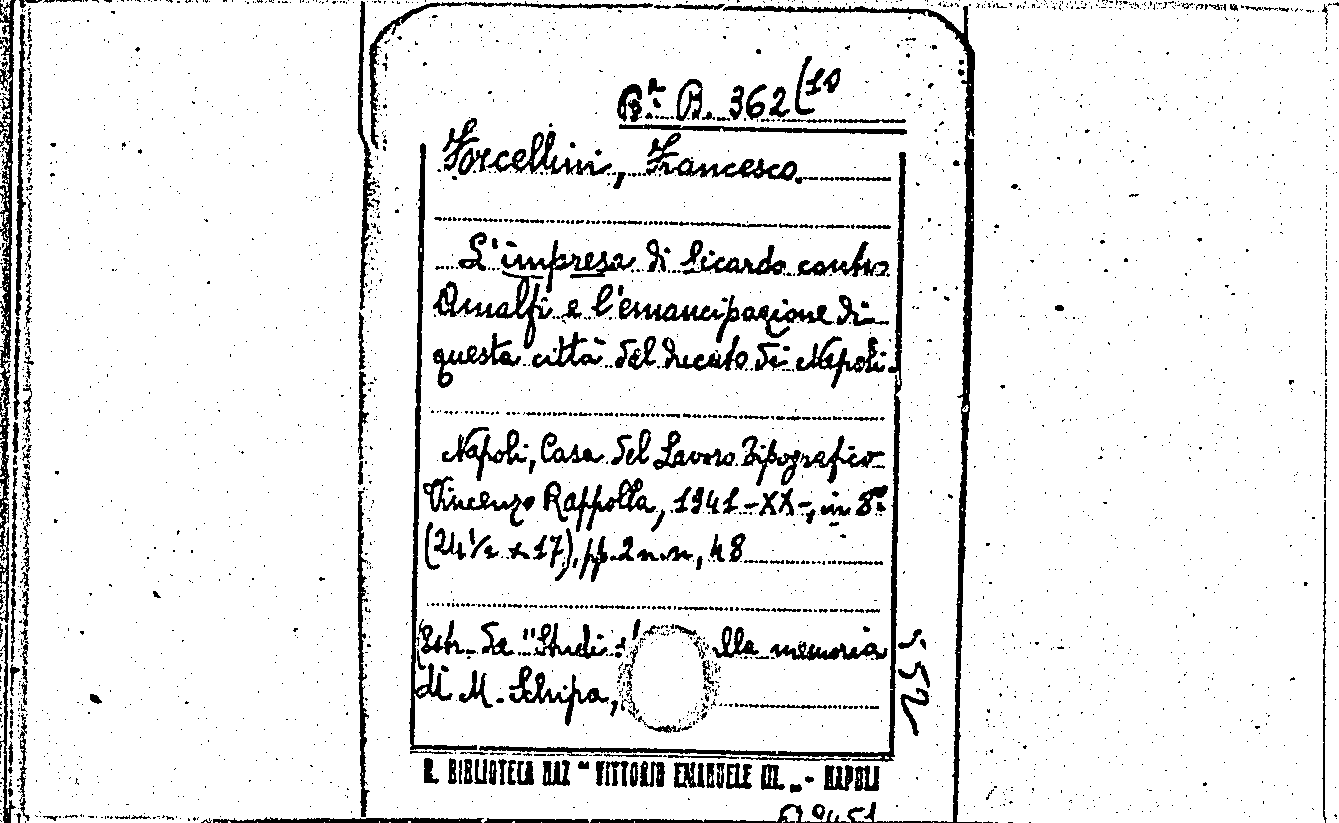 Bª. B. 362(10
Forcellini, Francesco.
L'impresa di Sicardo contro
Amalfi e l'emancipazione di
questa città del ducato di Napoli.
Napoli, Casa del Lavoro Tipografico
Vincenzo Rappolla, 1941-XX-, in 8º
(24½ x 17), pp. 2 n.n., 48
(Estr. da "Studi lla memoria
di M. Schipa,
552
R. BIBLIOTECA NAZ "VITTORIO EMANUELE III." - NAPOLI